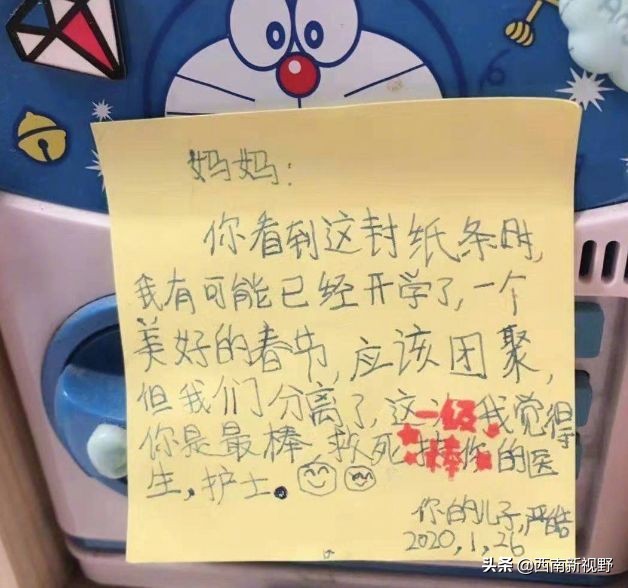 妈妈:
你看到这封纸条时,
我有可能已经开学了,一个
美好的春节,应该团聚,
但我们分离了,这一级我觉得
你是最棒 救死棒你的医
生,护士。
你的儿子,严皓
2020,1,26
头条 @西南新视野